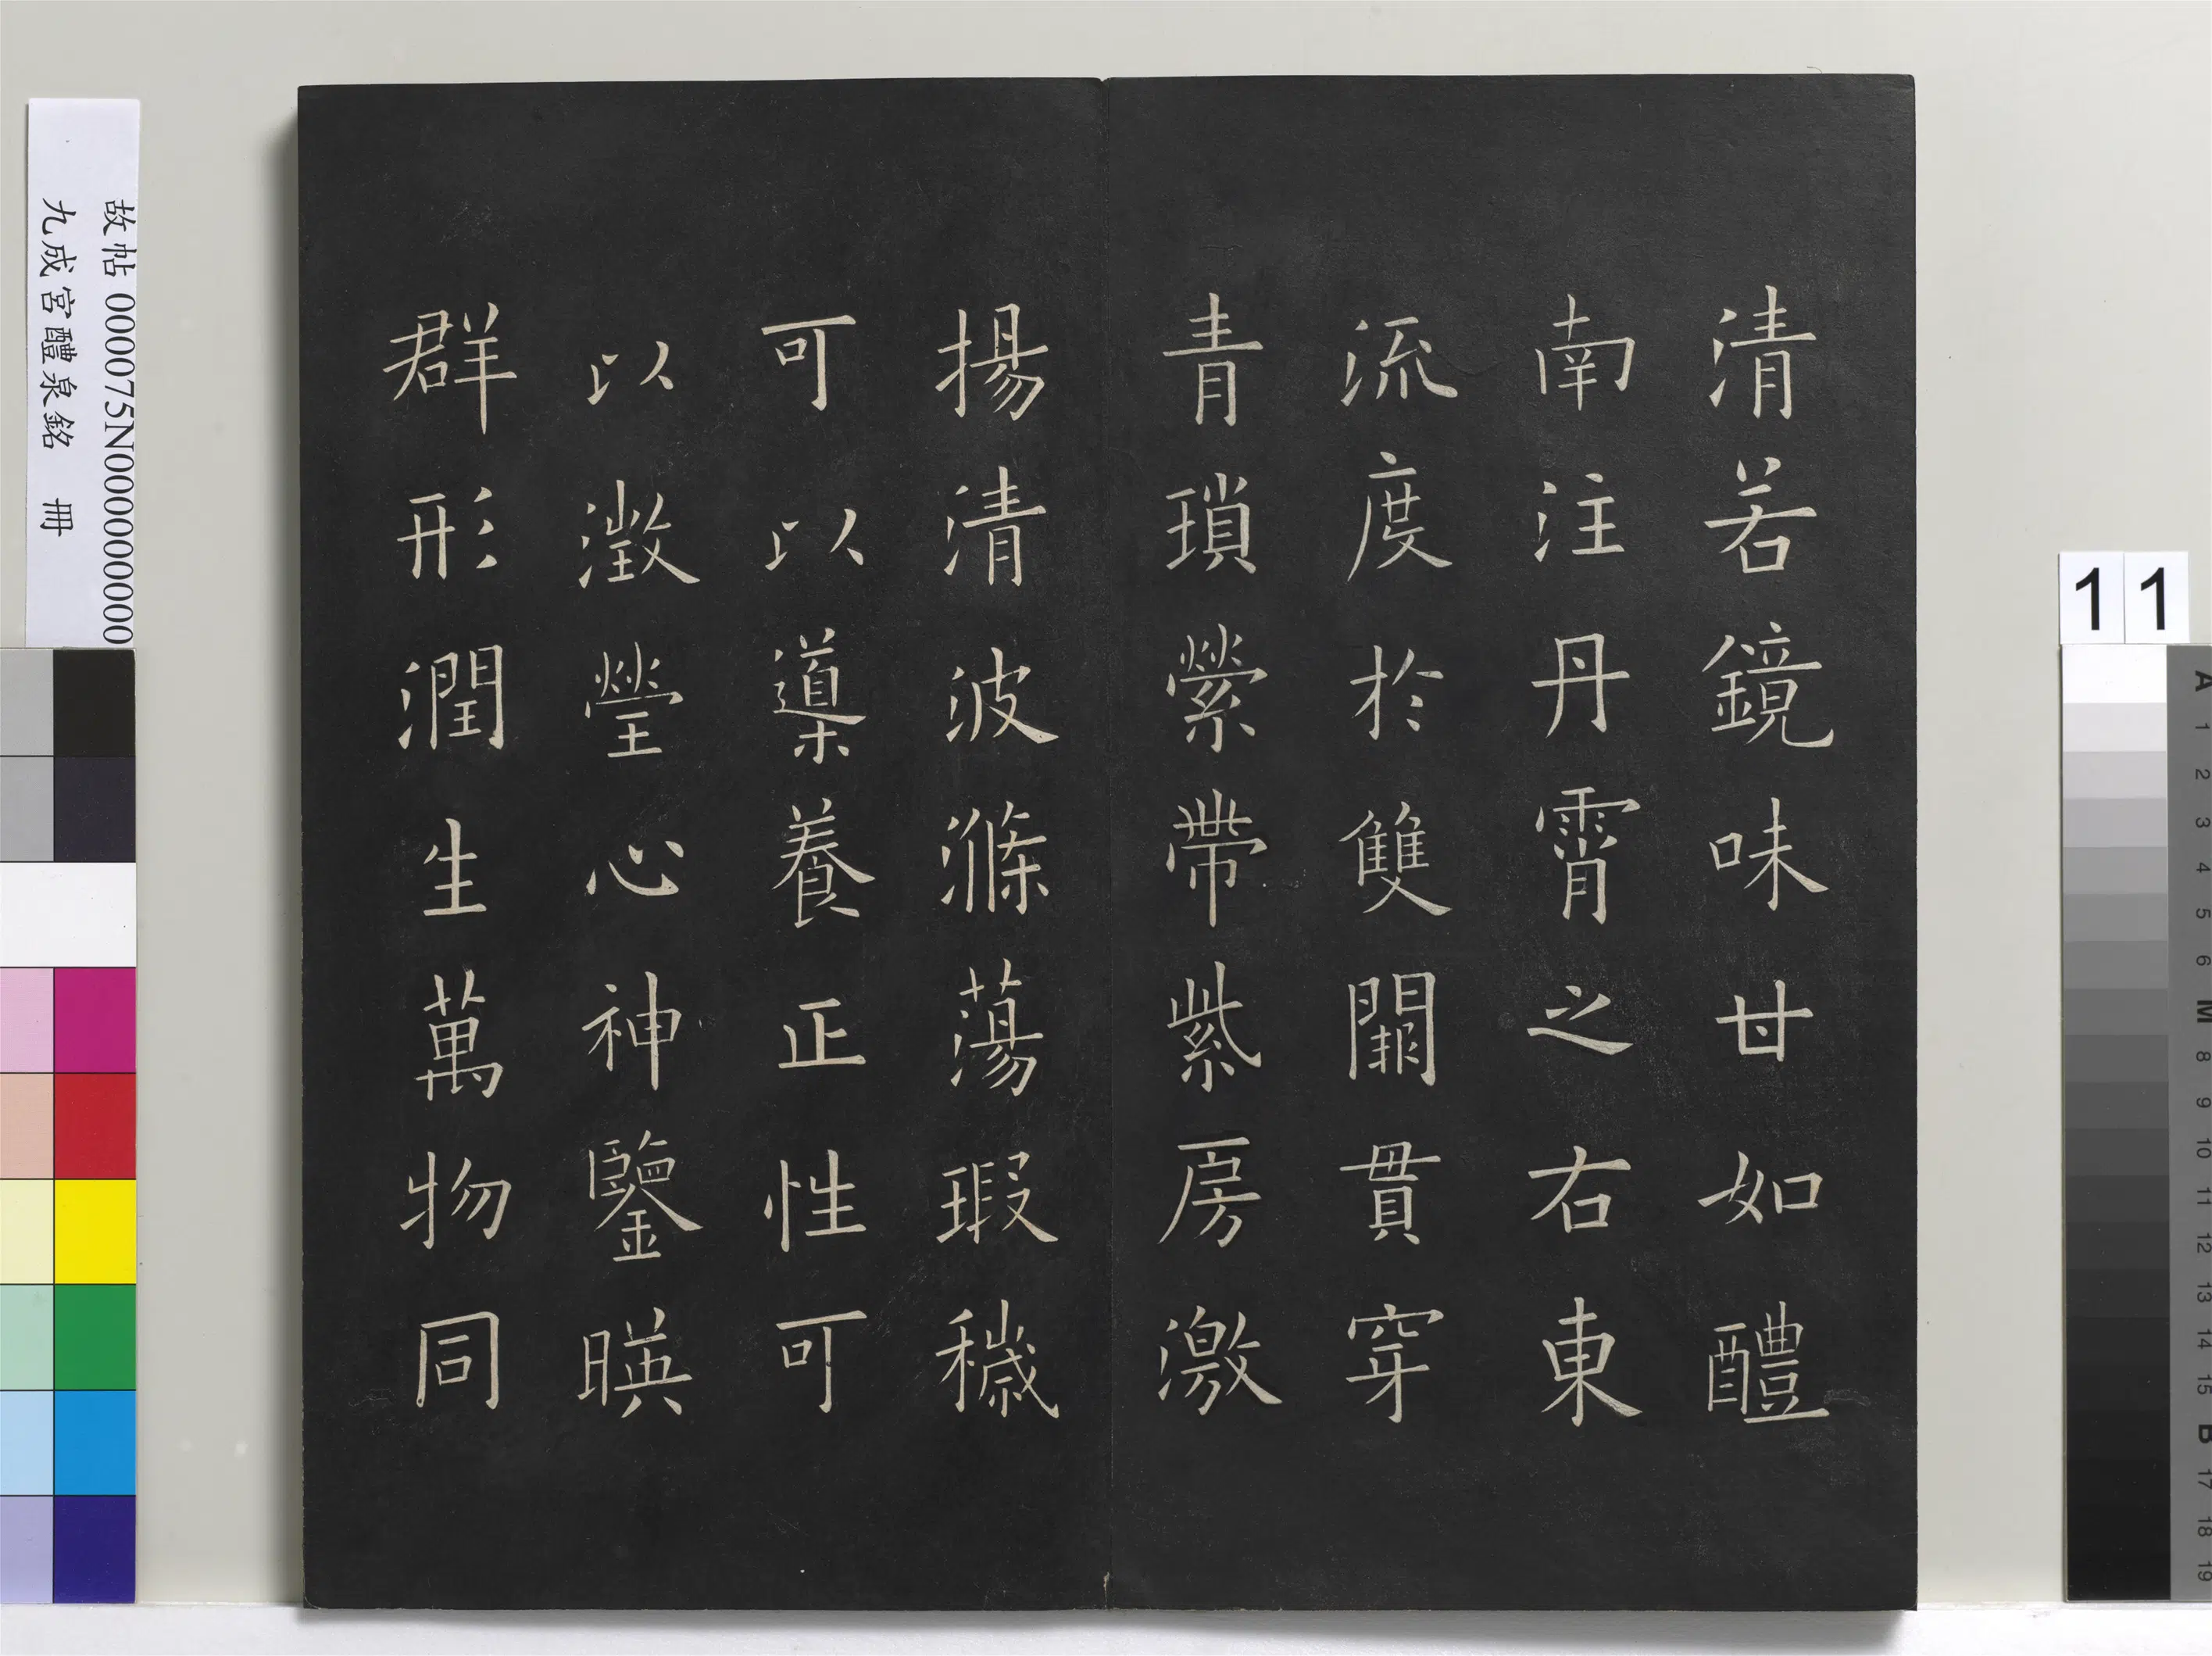 清若鏡味甘如醴
南注丹霄之右東
流度於雙闕貫穿
青瑣縈帶紫房激
揚清波滌蕩瑕穢
可以導養正性可
以澂瑩心神鑒暎
群形潤生萬物同
故帖 000075N000000000
九成宮醴泉銘 冊
11
A
1
2
3
4
5
6
M
8
9
10
11
12
13
14
15
B
17
18
19